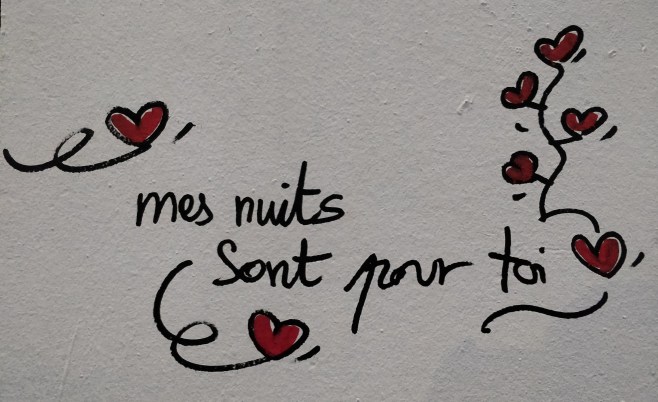 mes nuits
Sont pour toi